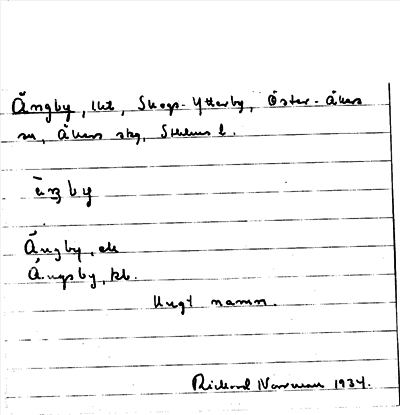 Ängby, lht, Skogs-Ytterby, Öster-Åkers
sn, Åkers skg, Sthlms l.
ä̀ŋby
Ängby, ek
Ängsby, kb.
Ungt namn.
Rickard 1934.